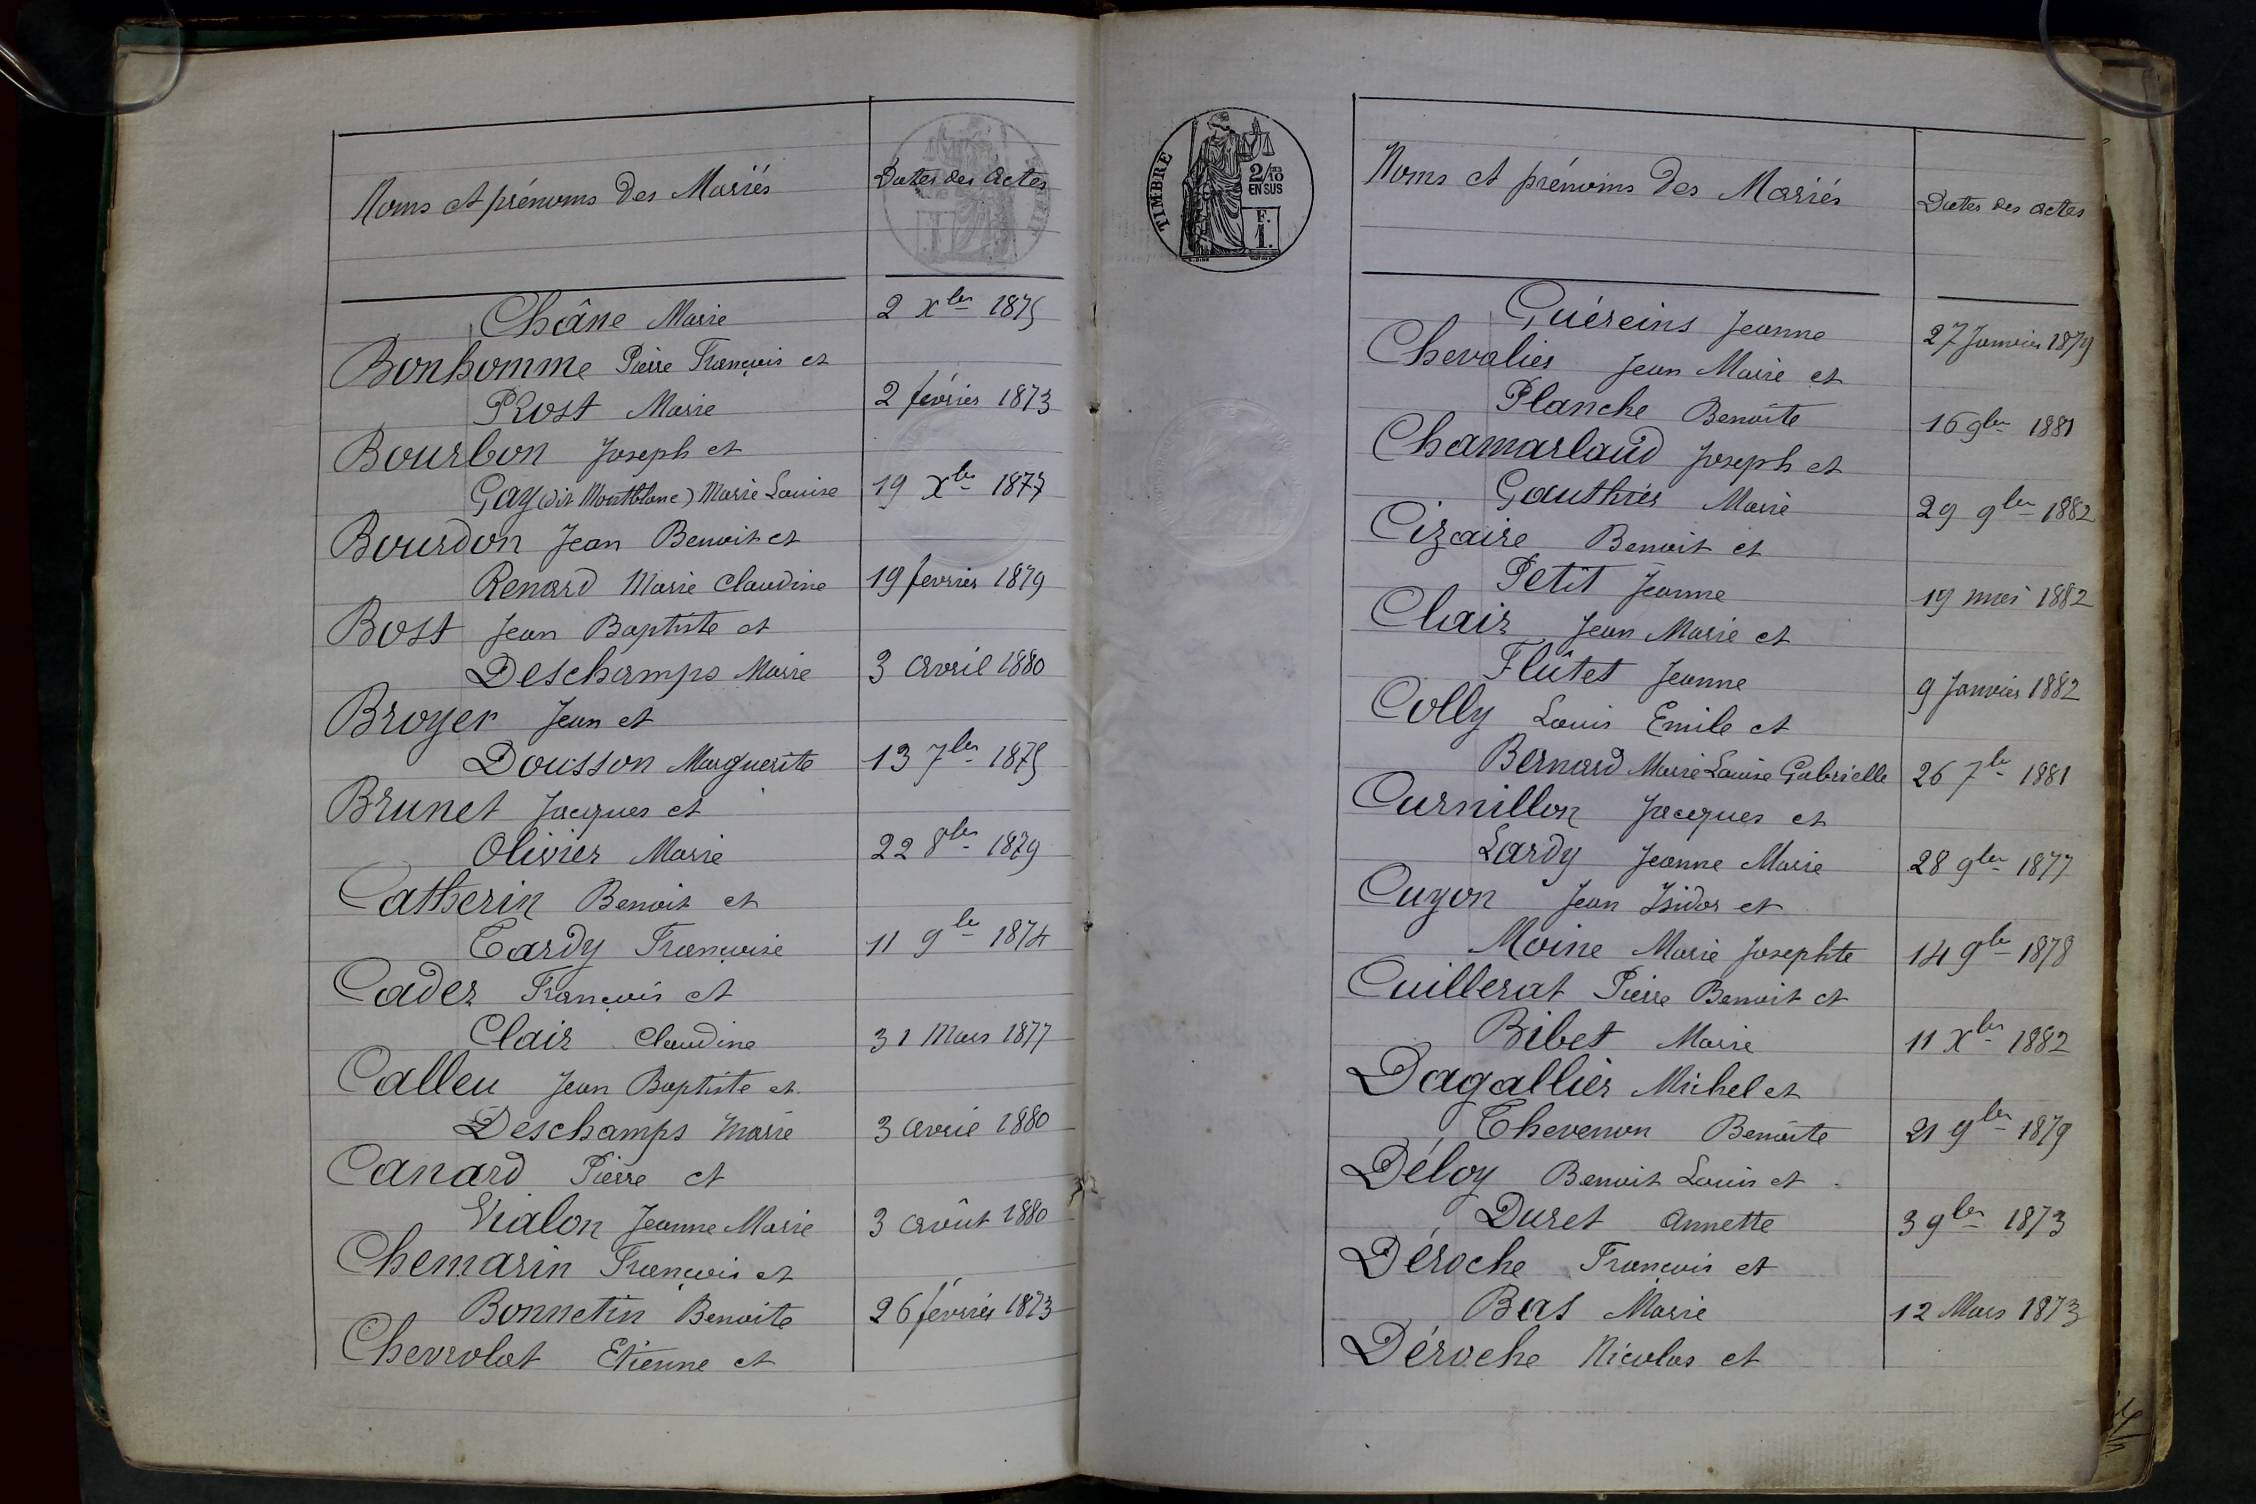 Noms et prénoms des Mariés
Dates des actes
Châne Marie 2 Xbre 1875
Bonhomme Pierre François et
Prost Marie 2 février 1873
Bourbon Joseph et
Gay (dit Montblanc) Marie Louise 19 Xbre 1877
Bourdon Jean Benoit et
Renard Marie Claudine 19 février 1879
Bost Jean Baptiste et
Deschamps Marie 3 avril 1880
Broyer Jean et
Dousson Marguerite 13 7bre 1875
Brunet Jacques et
Olivier Marie 22 8bre 1879
Catherin Benoit et
Tardy Françoise 11 9bre 1874
Cader François et
Clair Claudine 31 Mars 1877
Calleu Jean Baptiste et
Deschamps Marie 3 avril 1880
Canard Pierre et
Vialon Jeanne Marie 3 août 1880
Chemarin François et
Bonnetin Benoite 26 février 1873
Chevrolat Etienne et
TIMBRE
2/10
EN SUS
F.
1.
Noms et prénoms des Mariés
Dates des actes
Guéreins Jeanne 27 Janvier 1879
Chevalier Jean Marie et
Planche Benoîte 16 9bre 1881
Chamarlaud Joseph et
Gauthier Marie 29 9bre 1882
Cizaire Benoit et
Petit Jeanne 19 mai 1882
Clair Jean Marie et
Flûtet Jeanne 9 Janvier 1882
Colly Louis Emile et
Bernard Marie Louise Gabrielle 26 7bre 1881
Curnillon Jacques et
Lardy Jeanne Marie 28 9bre 1877
Cuzon Jean Isidor et
Moine Marie Josephte 14 9bre 1878
Cuillerat Pierre Benoit et
Bibet Marie 11 Xbre 1882
Dagallier Michel et
Thevenon Benoîte 21 9bre 1879
Déloy Benoit Louis et
Duret Annette 3 9bre 1873
Déroche François et
Bas Marie 12 Mars 1873
Déroche Nicolas et